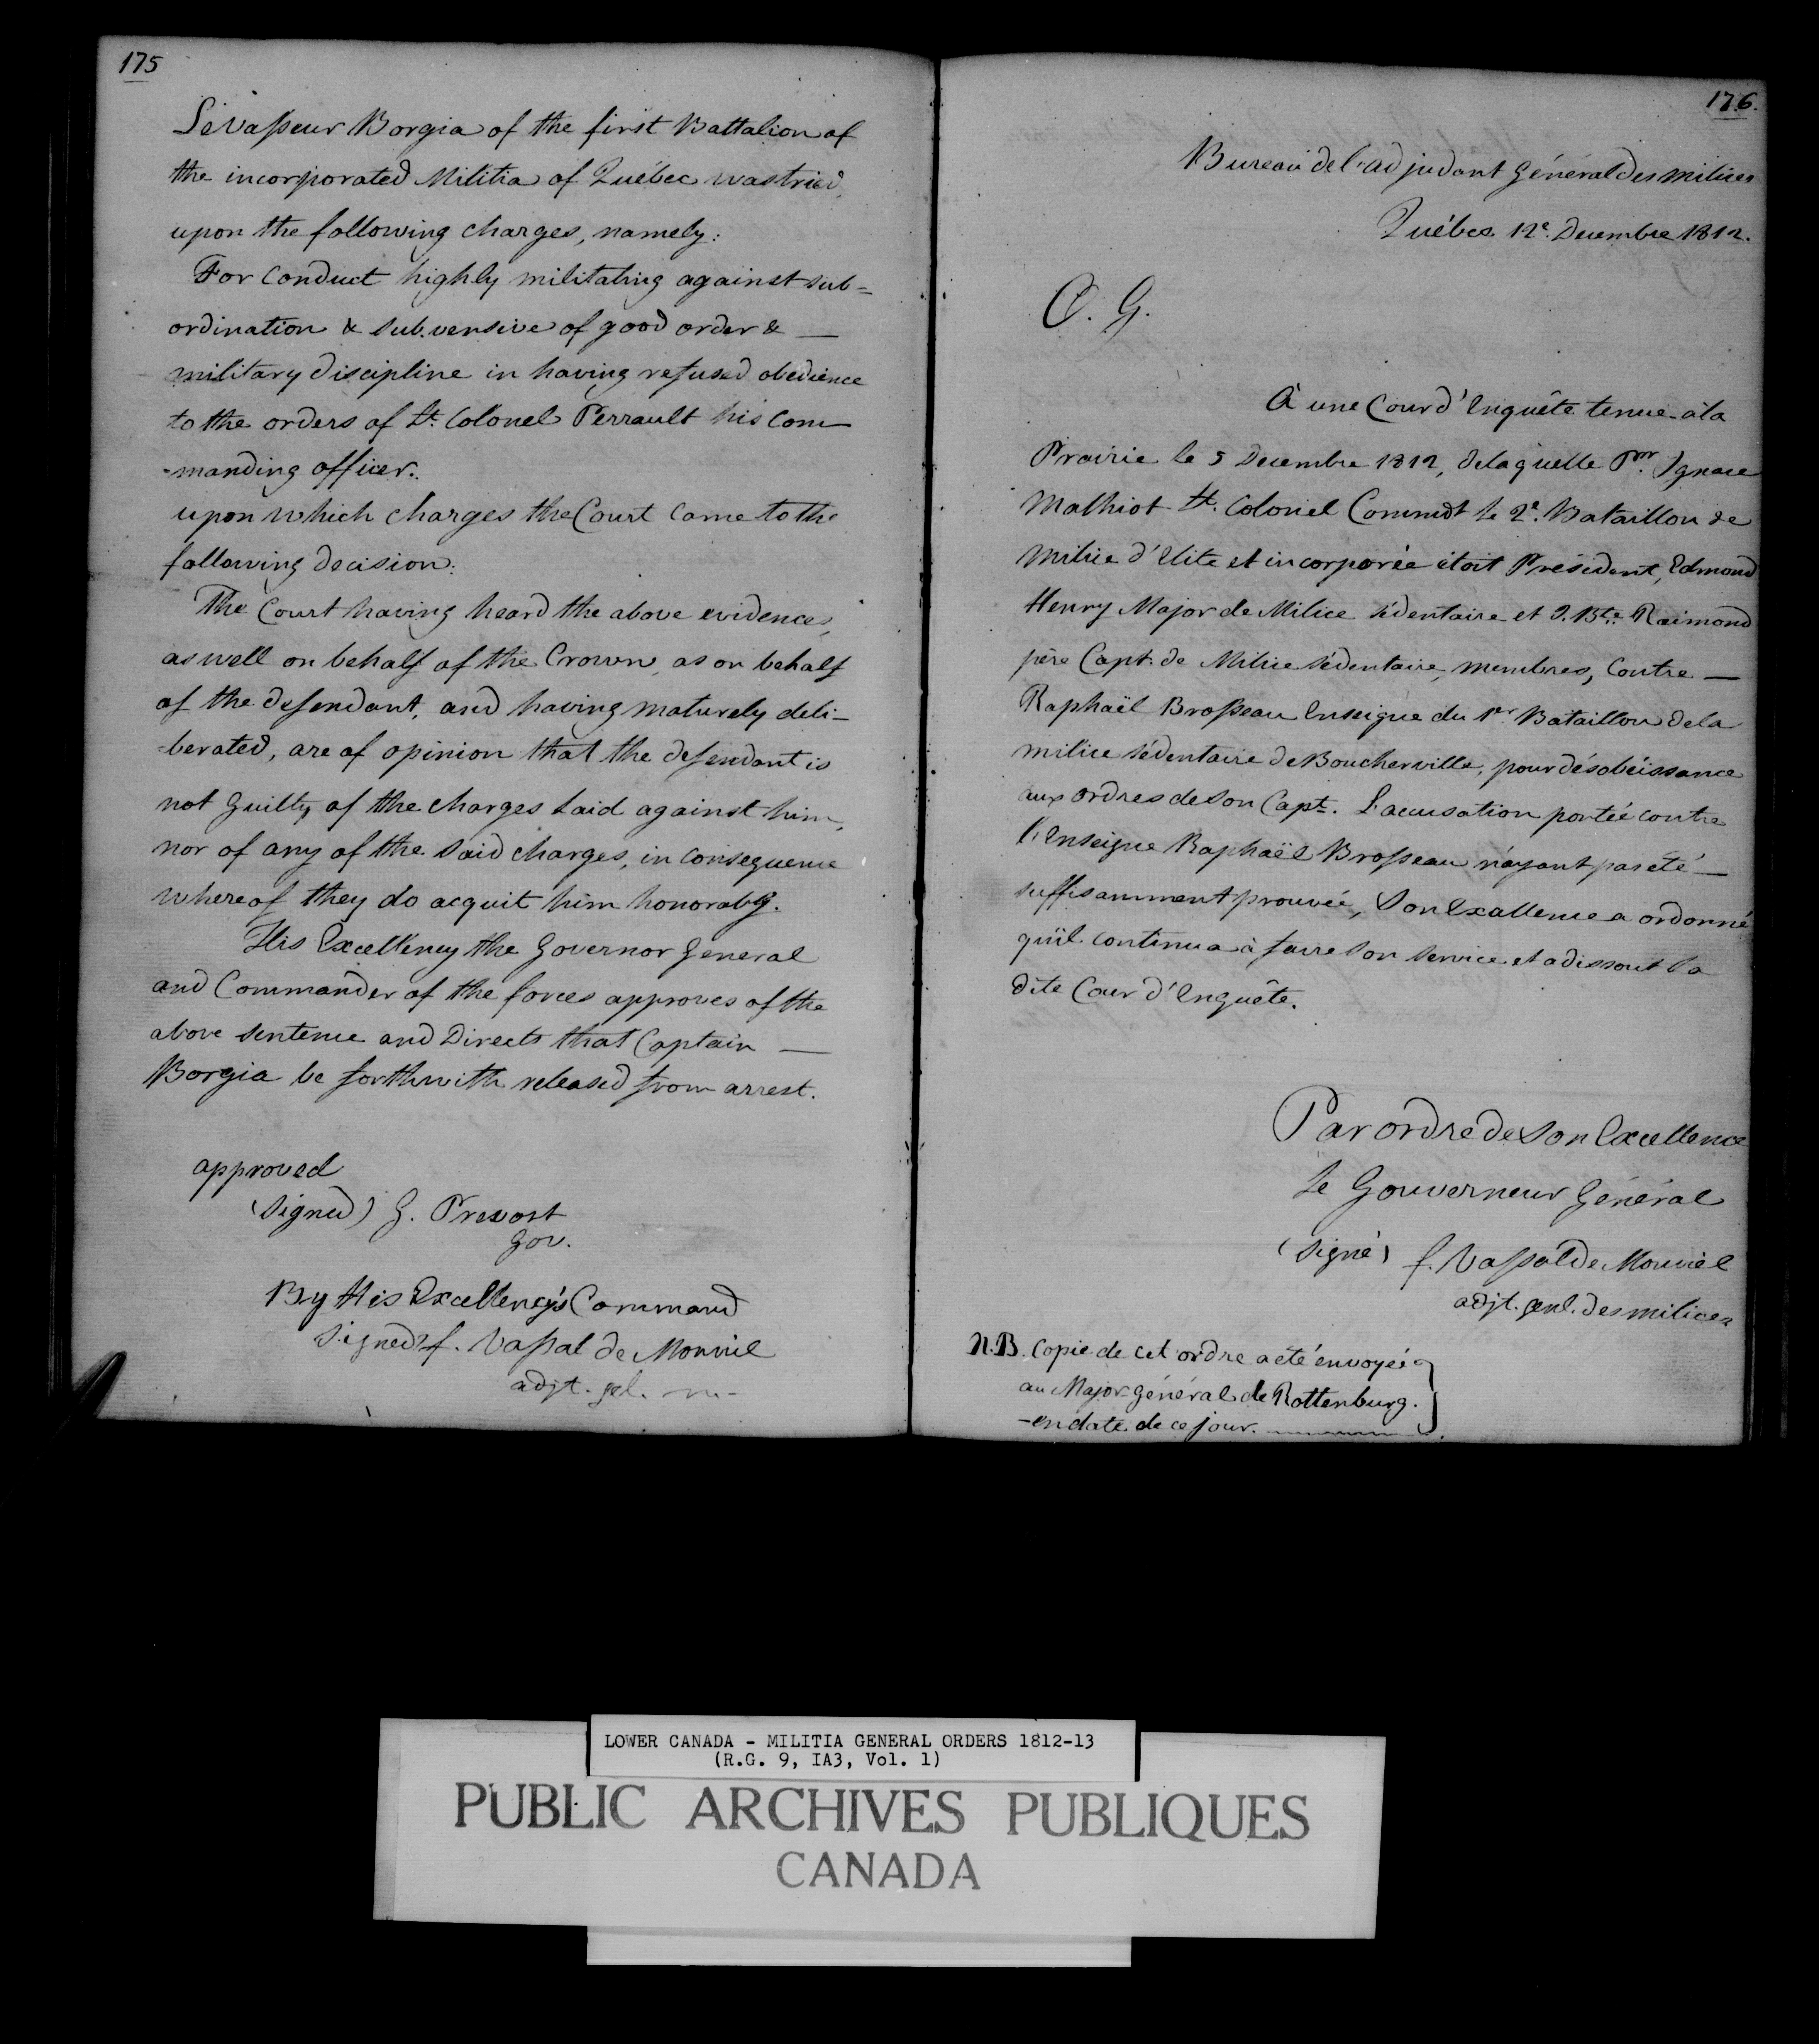 175
Levasseur Borgia of the first Battalion of
the incorporated Militia of Québec was tried,
upon the following charges, namely:
For conduct highly militating against sub=
ordination & subversive of good order & —
military discipline in having refused obedience
to the orders of Lt. Colonel Perrault his com
-manding officer.
upon which charges the Court came to the
following decision:
The Court having heard the above evidences,
as well on behalf of the Crown, as on behalf
of the defendant, and having maturely deli-
-berated, are of opinion that the defendant is
not Guilty of the charges laid against him,
nor of any of the said charges, in consequence
whereof they do acquit him honorably.
His Excellency the Governor General
and Commander of the forces approves of the
above sentence and Directs that Captain —
Borgia be forthwith released from arrest.
approved
(signed) G. Prevost
Gov.
By His Excellency's Command
signed f. Vassal de Monviel
adjt. gl. m-
176.
Bureau de l'adjudant Général des milices
Québec 12e. Decembre 1812.
O. G.
À une Cour d'Enquête tenue à la
Prairie le 5 Decembre 1812, de laquelle Prr. Ignace
Malhiot Lt. Colonel Commdt le 2e. Bataillon de
Milice d'Elite et incorporée étoit Président, Edmond
Henry Major de Milice sédentaire et J. Bte. Raimond
père Capt. de Milice sédentaire, membres, Contre —
Raphaël Brosseau Enseigne du 1er. Bataillon de la
milice sédentaire de Boucherville, pour désobéissance
aux ordres de son Capt. L'accusation portée contre
l'Enseigne Raphaël Brosseau n'ayant pas été —
suffisamment prouvée, Son Excellence a ordonné
qu'il continua à faire son service et a dissout la
dite Cour d'Enquête.
Par ordre de Son Excellence
Le Gouverneur Général
(signé) f. Vassal de Monviel
adjt. genl. des milices
N.B. Copie de cet ordre a été envoyée
au Major-général de Rottenburg.
-en date de ce jour.
LOWER CANADA - MILITIA GENERAL ORDERS 1812-13
(R.G. 9, IA3, Vol. 1)
PUBLIC ARCHIVES PUBLIQUES
CANADA